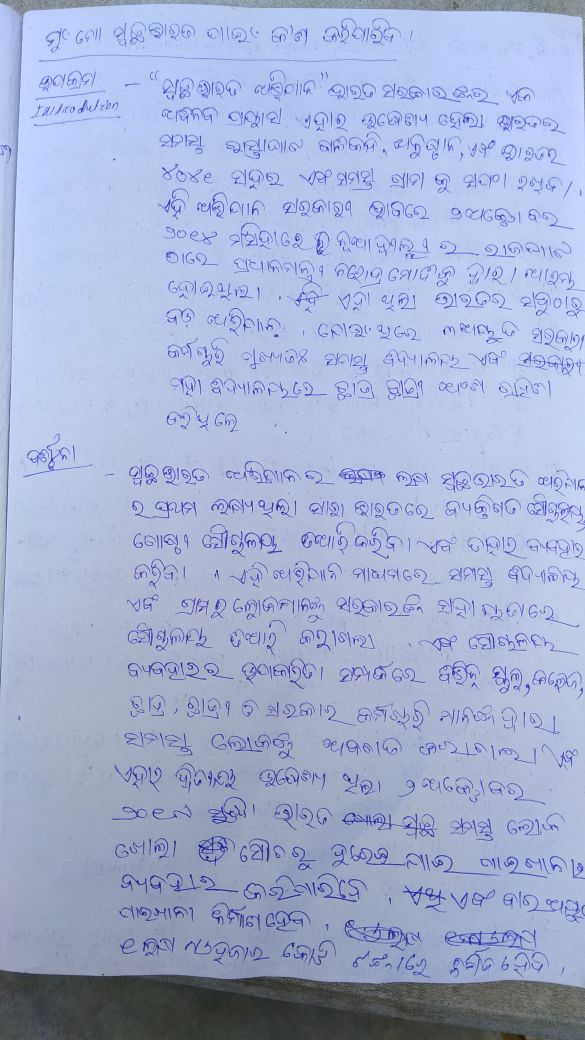 ମୁଁ ମୋ ସ୍ୱଚ୍ଛ ଭାରତ ପାଇଁ କ'ଣ କରିପାରିବି ।
ଉପକ୍ରମ
Introdution
– "ସ୍ୱଚ୍ଛ ଭାରତ ଅଭିଯାନ" ଭାରତ ସରକାରଙ୍କର ଏକ
ଅଭିନବ ପ୍ରୟାସ ଏହାର ଉଦ୍ଦେଶ୍ୟ ହେଲା ଭାରତର
ସମସ୍ତ ରାସ୍ତାଘାଟ ଗଳିକନ୍ଦି, ଅନୁଷ୍ଠାନ, ଏବଂ ଭାରତର
୪୦୪୧ ସହର ଏବଂ ସମସ୍ତ ଗ୍ରାମ କୁ ସଫା ରଖିବା,
ଏହି ଅଭିଯାନ ସରକାରୀ ଭାବରେ ୨ଅକ୍ଟୋବର
୨୦୧୪ ମସିହାରେ ନୂଆଦିଲ୍ଲୀ ର ରାଜଘାଟ
ଠାରେ ପ୍ରଧାନମନ୍ତ୍ରୀ ନରେନ୍ଦ୍ର ମୋଦୀଙ୍କ ଦ୍ୱାରା ଆରମ୍ଭ
ହୋଇଥିଲା । ଏହା ଥିଲା ଭାରତର ସବୁଠାରୁ
ବଡ଼ ଅଭିଯାନ । ଯେଉଁଥିରେ ସରକାରୀ
କର୍ମଚାରୀ ମୁଖ୍ୟତଃ ସମସ୍ତ ବିଦ୍ୟାଳୟ ଏବଂ
ମହା ବିଦ୍ୟାଳୟରେ ଛାତ୍ର ଛାତ୍ରୀ ଅଂଶ ଗ୍ରହଣ
କରିଥିଲେ
ବର୍ଣ୍ଣନା
– ସ୍ୱଚ୍ଛ ଭାରତ ଅଭିଯାନ ର ଲକ୍ଷ ସ୍ୱଚ୍ଛ ଭାରତ ଅଭିଯାନ
ର ପ୍ରଥମ ଲକ୍ଷ୍ୟ ଥିଲା ସାରା ଭାରତରେ ବ୍ୟକ୍ତିଗତ ଶୌଚାଳୟ
ଗୋଷ୍ଠୀ ଶୌଚାଳୟ ତଆରି କରିବା । ଏବଂ ତାହାର ବ୍ୟବହାର
କରିବା । ଏହି ଅଭିଯାନ ମାଧ୍ୟମରେ ସମସ୍ତ ବିଦ୍ୟାଳୟ
ଏବଂ ଗ୍ରାମର ଲୋକମାନଙ୍କୁ ସରକାରଙ୍କ ସହାୟତାରେ
ଶୌଚାଳୟ ତଆରି କରାଗଲା . ଏବଂ ଶୌଚାଳୟ
ବ୍ୟବହାରର ଉପକାରିତା ସମ୍ପର୍କରେ ବିଭିନ୍ନ ସ୍କୁଲ୍, କଲେଜ,
ଛାତ୍ର, ଛାତ୍ରୀ ଓ ସରକାରୀ କର୍ମଚାରି ମାନଙ୍କ ଦ୍ୱାରା
ସମସ୍ତ ଲୋକଙ୍କୁ ଅବଗତ କରାଗଲା ଏବଂ
ଏହାର ଦ୍ୱିତୀୟ ଉଦ୍ଦେଶ୍ୟ ଥିଲା ୨ ଅକ୍ଟୋବର
୨୦୧୯ ସୁଦ୍ଧା ଭାରତ ସମସ୍ତ ଲୋକ
ଖୋଲା ଶୌଚରୁ ଦୂରେଇ ଯାଇ ପାଇଖାନା
ବ୍ୟବହାର କରିପାରିବେ , ଏବଂ
ପାଇଖାନା ନିର୍ମାଣ ହେବ ,
୧ ଲକ୍ଷ କୋଟି ଟଙ୍କାରେ ନିର୍ମିତ ହେବ ,